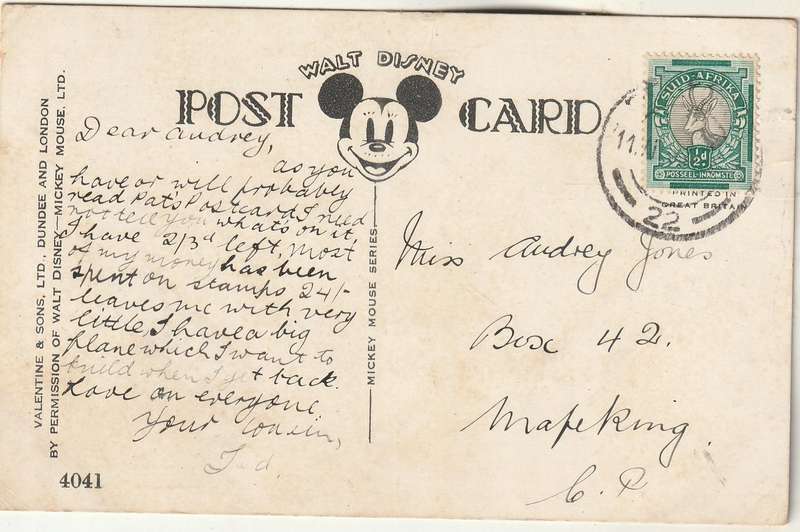 WALT DISNEY
POST CARD
Dear Audrey,
as you
have or will probabley
read Pat's Postcard I need
not tell you what's on it
I have 2/3d left, most
of my money has been
spent on stamps 24/-
leaves me with very
little, I have a big
plane which I want to
build when I get back.
Love on everyone
Your cousin,
VALENTINE & SONS, LTD., DUNDEE AND LONDON
BY PERMISSION OF WALT DISNEY—MICKEY MOUSE, LTD.
4041
MICKEY MOUSE SERIES
SUID-AFRIKA
½d.
POSSEEL-INKOMSTE
PRINTED IN
GREAT BRITAIN
11.
22
Miss Audrey Jones
Box 42.
Mafeking.
C. P.